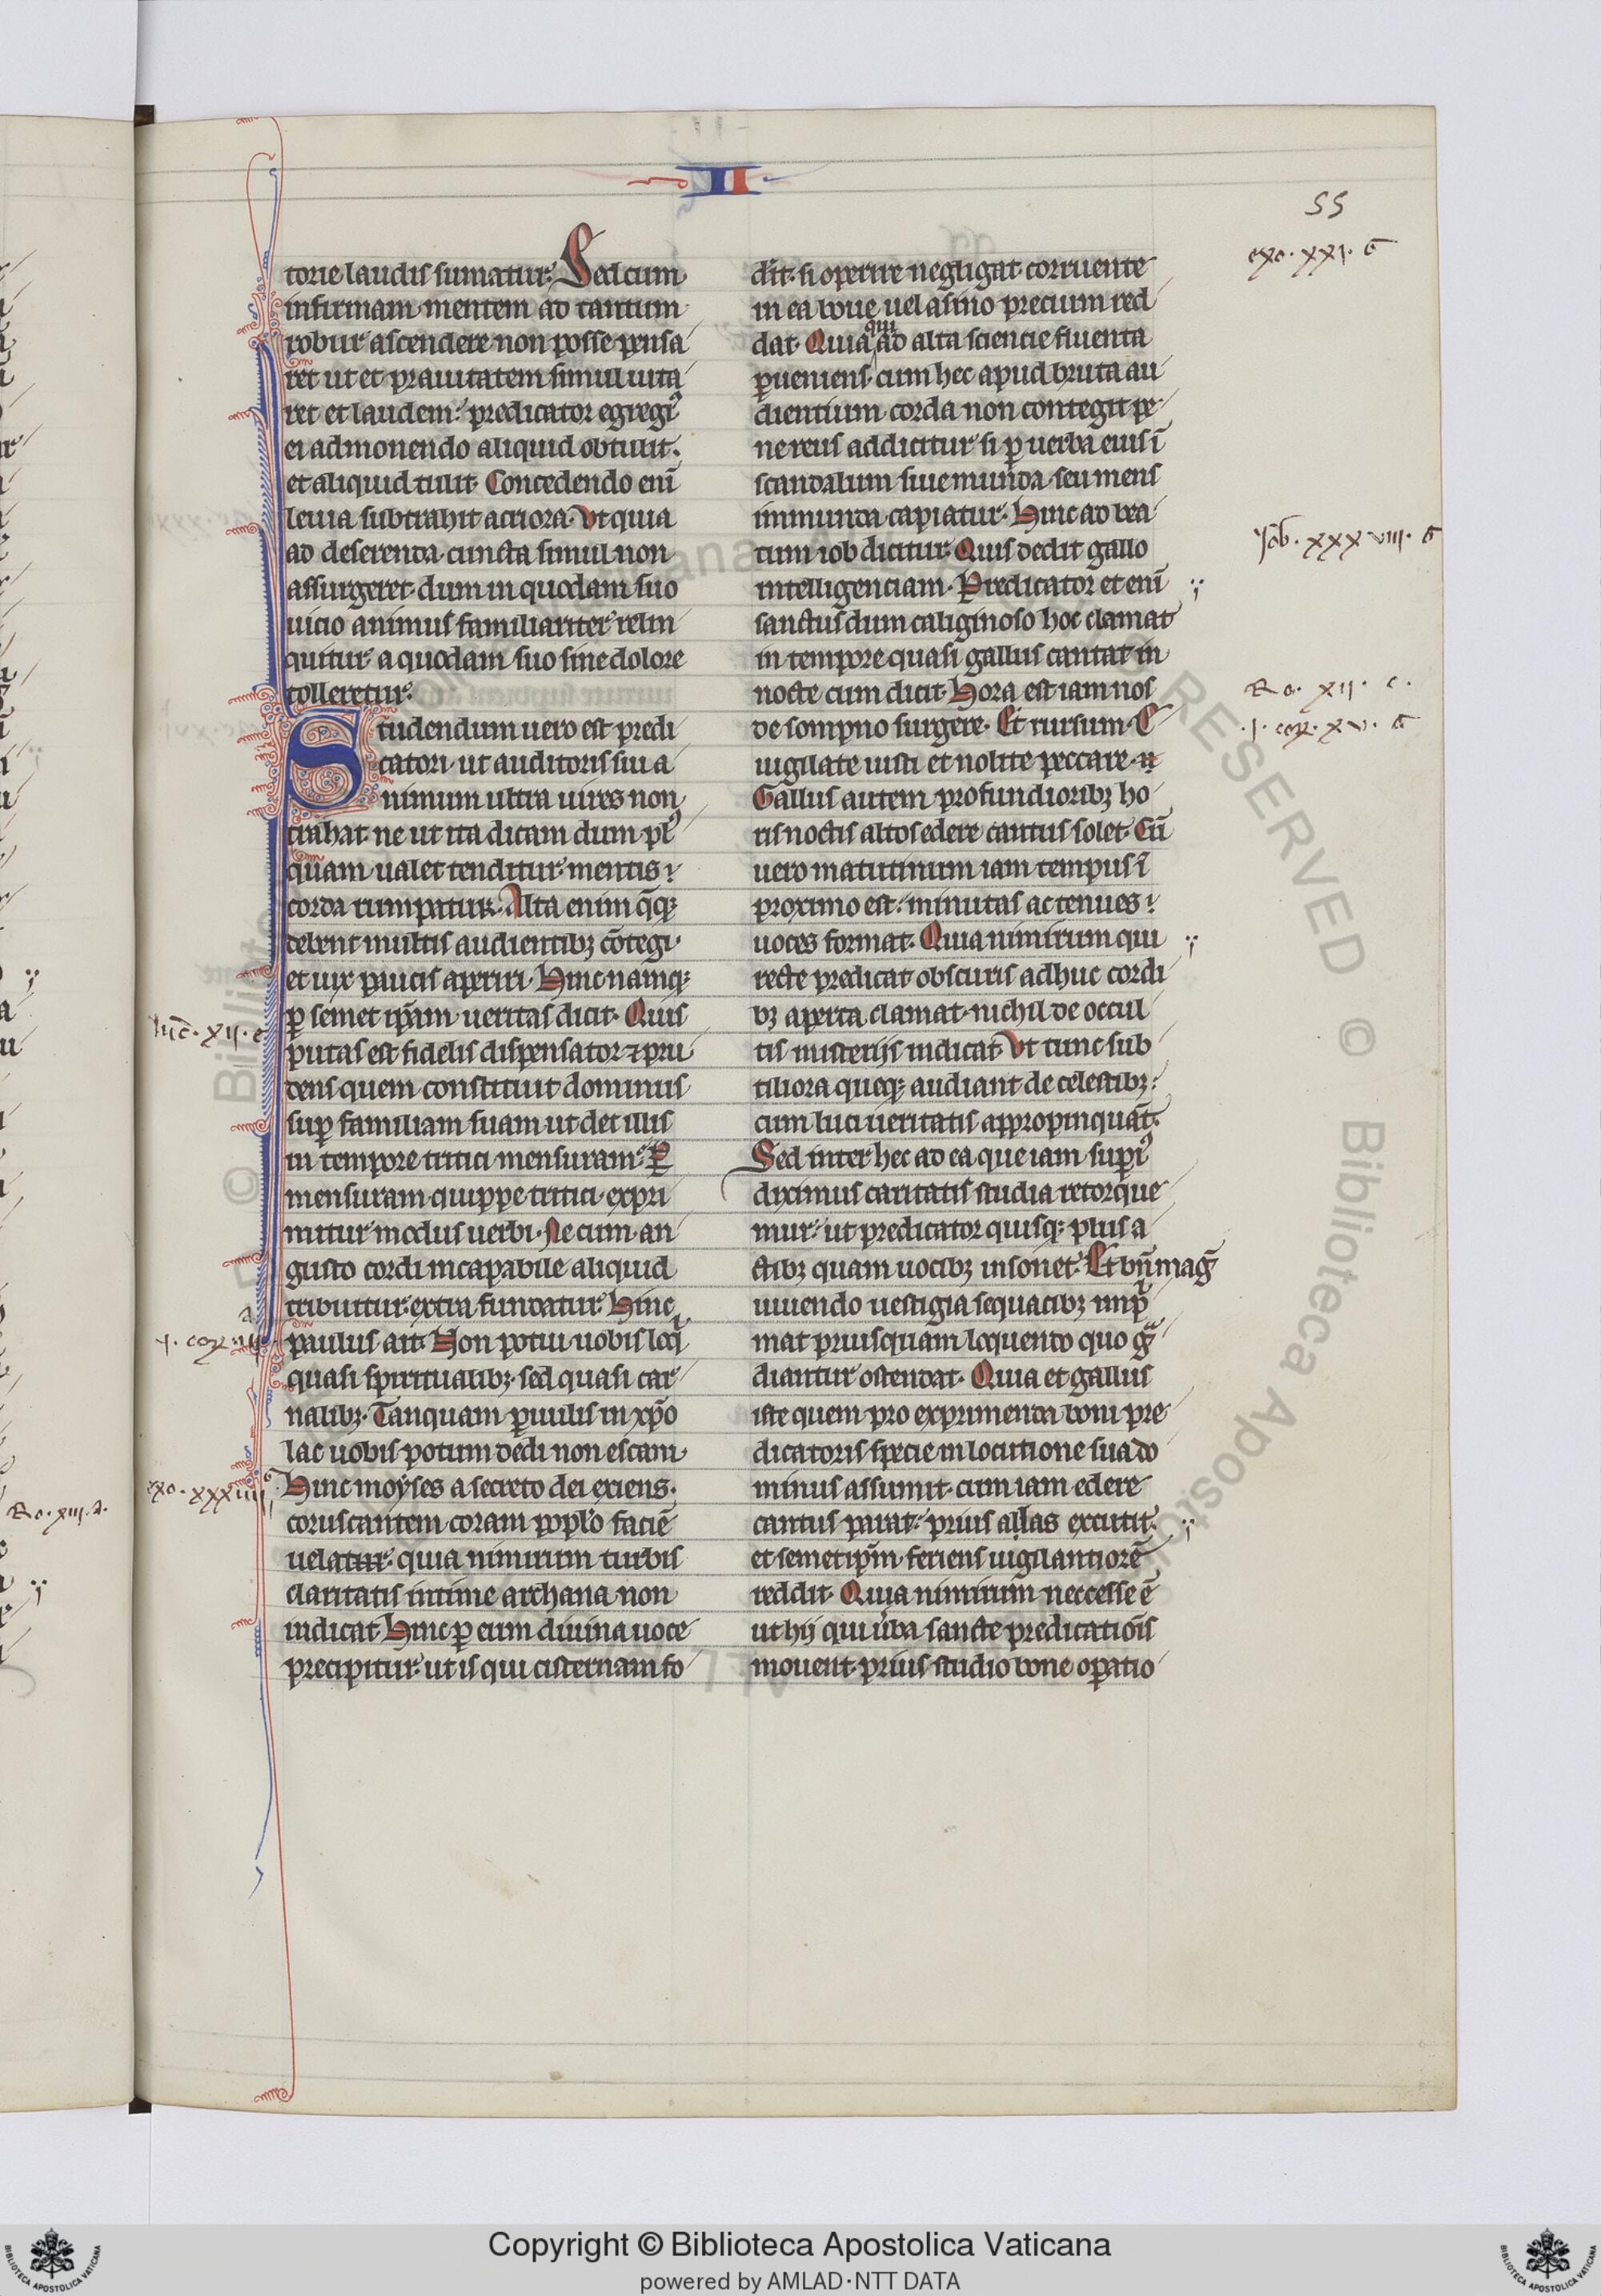 II
55
torie laudis sumatur. Sed cum
infirmam mentem ad tantum
robur ascendere non posse pensa
ret ut et prauitatem simul uita
ret et laudem: predicator egregiꝰ
ei admonendo aliquid obtulit.
et aliquid tulit. Concedendo eni̅
leuia subtrahit acriora. Vt quia
ad deserenda cuncta simul non
assurgeret. dum in quodam suo
uicio animus familiariter relin
quitur a quodam suo sine dolore
tolleretur.
Studendum uero est predi
catori. ut auditoris sui a
nimum ultra uires non
trahat ne ut ita dicam dum plꝰ
quam ualet tenditur mentis
corda rumpatur. Alta enim q̅qꝫ
debent multis audientibꝫ co̅tegi.
et uix paucis aperiri. Hinc namqꝫ
ꝑ semet ip̅am ueritas dicit. Quis
putas est fidelis dispensator ⁊ pru
dens quem constituit dominus
suꝑ familiam suam ut det illis
in tempore tritici mensuram. Ꝑ
mensuram quippe tritici expri
mitur modus uerbi. Ne cum an
gusto cordi incapabile aliquid
tribuitur extra fundatur. Hinc
paulus ait. Non potui uobis loqͥ
quasi spiritualibꝫ. sed quasi car
nalibꝫ. Tanquam ꝑuulis in xp̅o
lac uobis potum dedi non escam
Hinc moyses a secreto dei exiens.
coruscantem coram pop̅lo facie̅
uelatur. quia nimirum turbis
claritatis intime archana non
indicat. Hinc ꝑ eum diuina uoce
precipitur. ut is qui cisternam fo
luc̅. xij. e
.j. cor. iij. a
exo. xxxiiij. G
d̅it. si operire negligat. corruente
in ea boue uel asino precium red
dat. Quia qui ad alta sciencie fluenta
ꝑueniens. cum hec apud bruta au
dientium corda non contegit. pe
ne reus addicitur si ꝑ uerba eius i̅
scandalum siue munda seu mens
immunda capiatur. Hinc ad bea
tum iob dicitur. Quis dedit gallo
intelligenciam. Predicator et eni̅
sanctus dum caliginoso hoc clamat
in tempore quasi gallus cantat in
nocte cum dicit. Hora est iam nos
de sompno surgere. Et rursum. E
uigilate iusti et nolite peccare.
Gallus autem profundioribꝫ ho
ris noctis altos edere cantus solet. Cu̅
uero matutinum iam tempus i̅
proximo est: minutas ac tenues
uoces format. Quia nimirum qui
recte predicat obscuris adhuc cordi
bꝫ aperta clamat. nichil de occul
tis misterijs indicat. Vt tunc sub
tiliora queqꝫ audiant de celestibꝫ:
cum luci ueritatis appropinqua̅t.
Sed inter hec ad ea que iam supiꝰ
diximus caritatis studia retorque
mur. ut predicator quisqꝫ plus a
ctibꝫ quam uocibꝫ insonet. Et bn̅ mag̅
uiuendo uestigia sequacibꝫ impͥ
mat priusquam loquendo quo gͣ
diantur ostendat. Quia et gallus
iste quem pro exprimenda boni pre
dicatoris specie in locutione sua do
minus assumit. cum iam edere
cantus parat: prius allas excutit.
et semetip̅m feriens uigilantiore̅
reddit. Quia nimirum neccesse e̅
ut hij qui u̅ba sancte predicatio̅is
mouent. prius studio bone oꝑatio
exo. xxj. G
Job. xxxviii. G
Ro. xij. c.
.j. cor. xv. G
Ro. xiij. d.
Copyright © Biblioteca Apostolica Vaticana
powered by AMLAD·NTT DATA